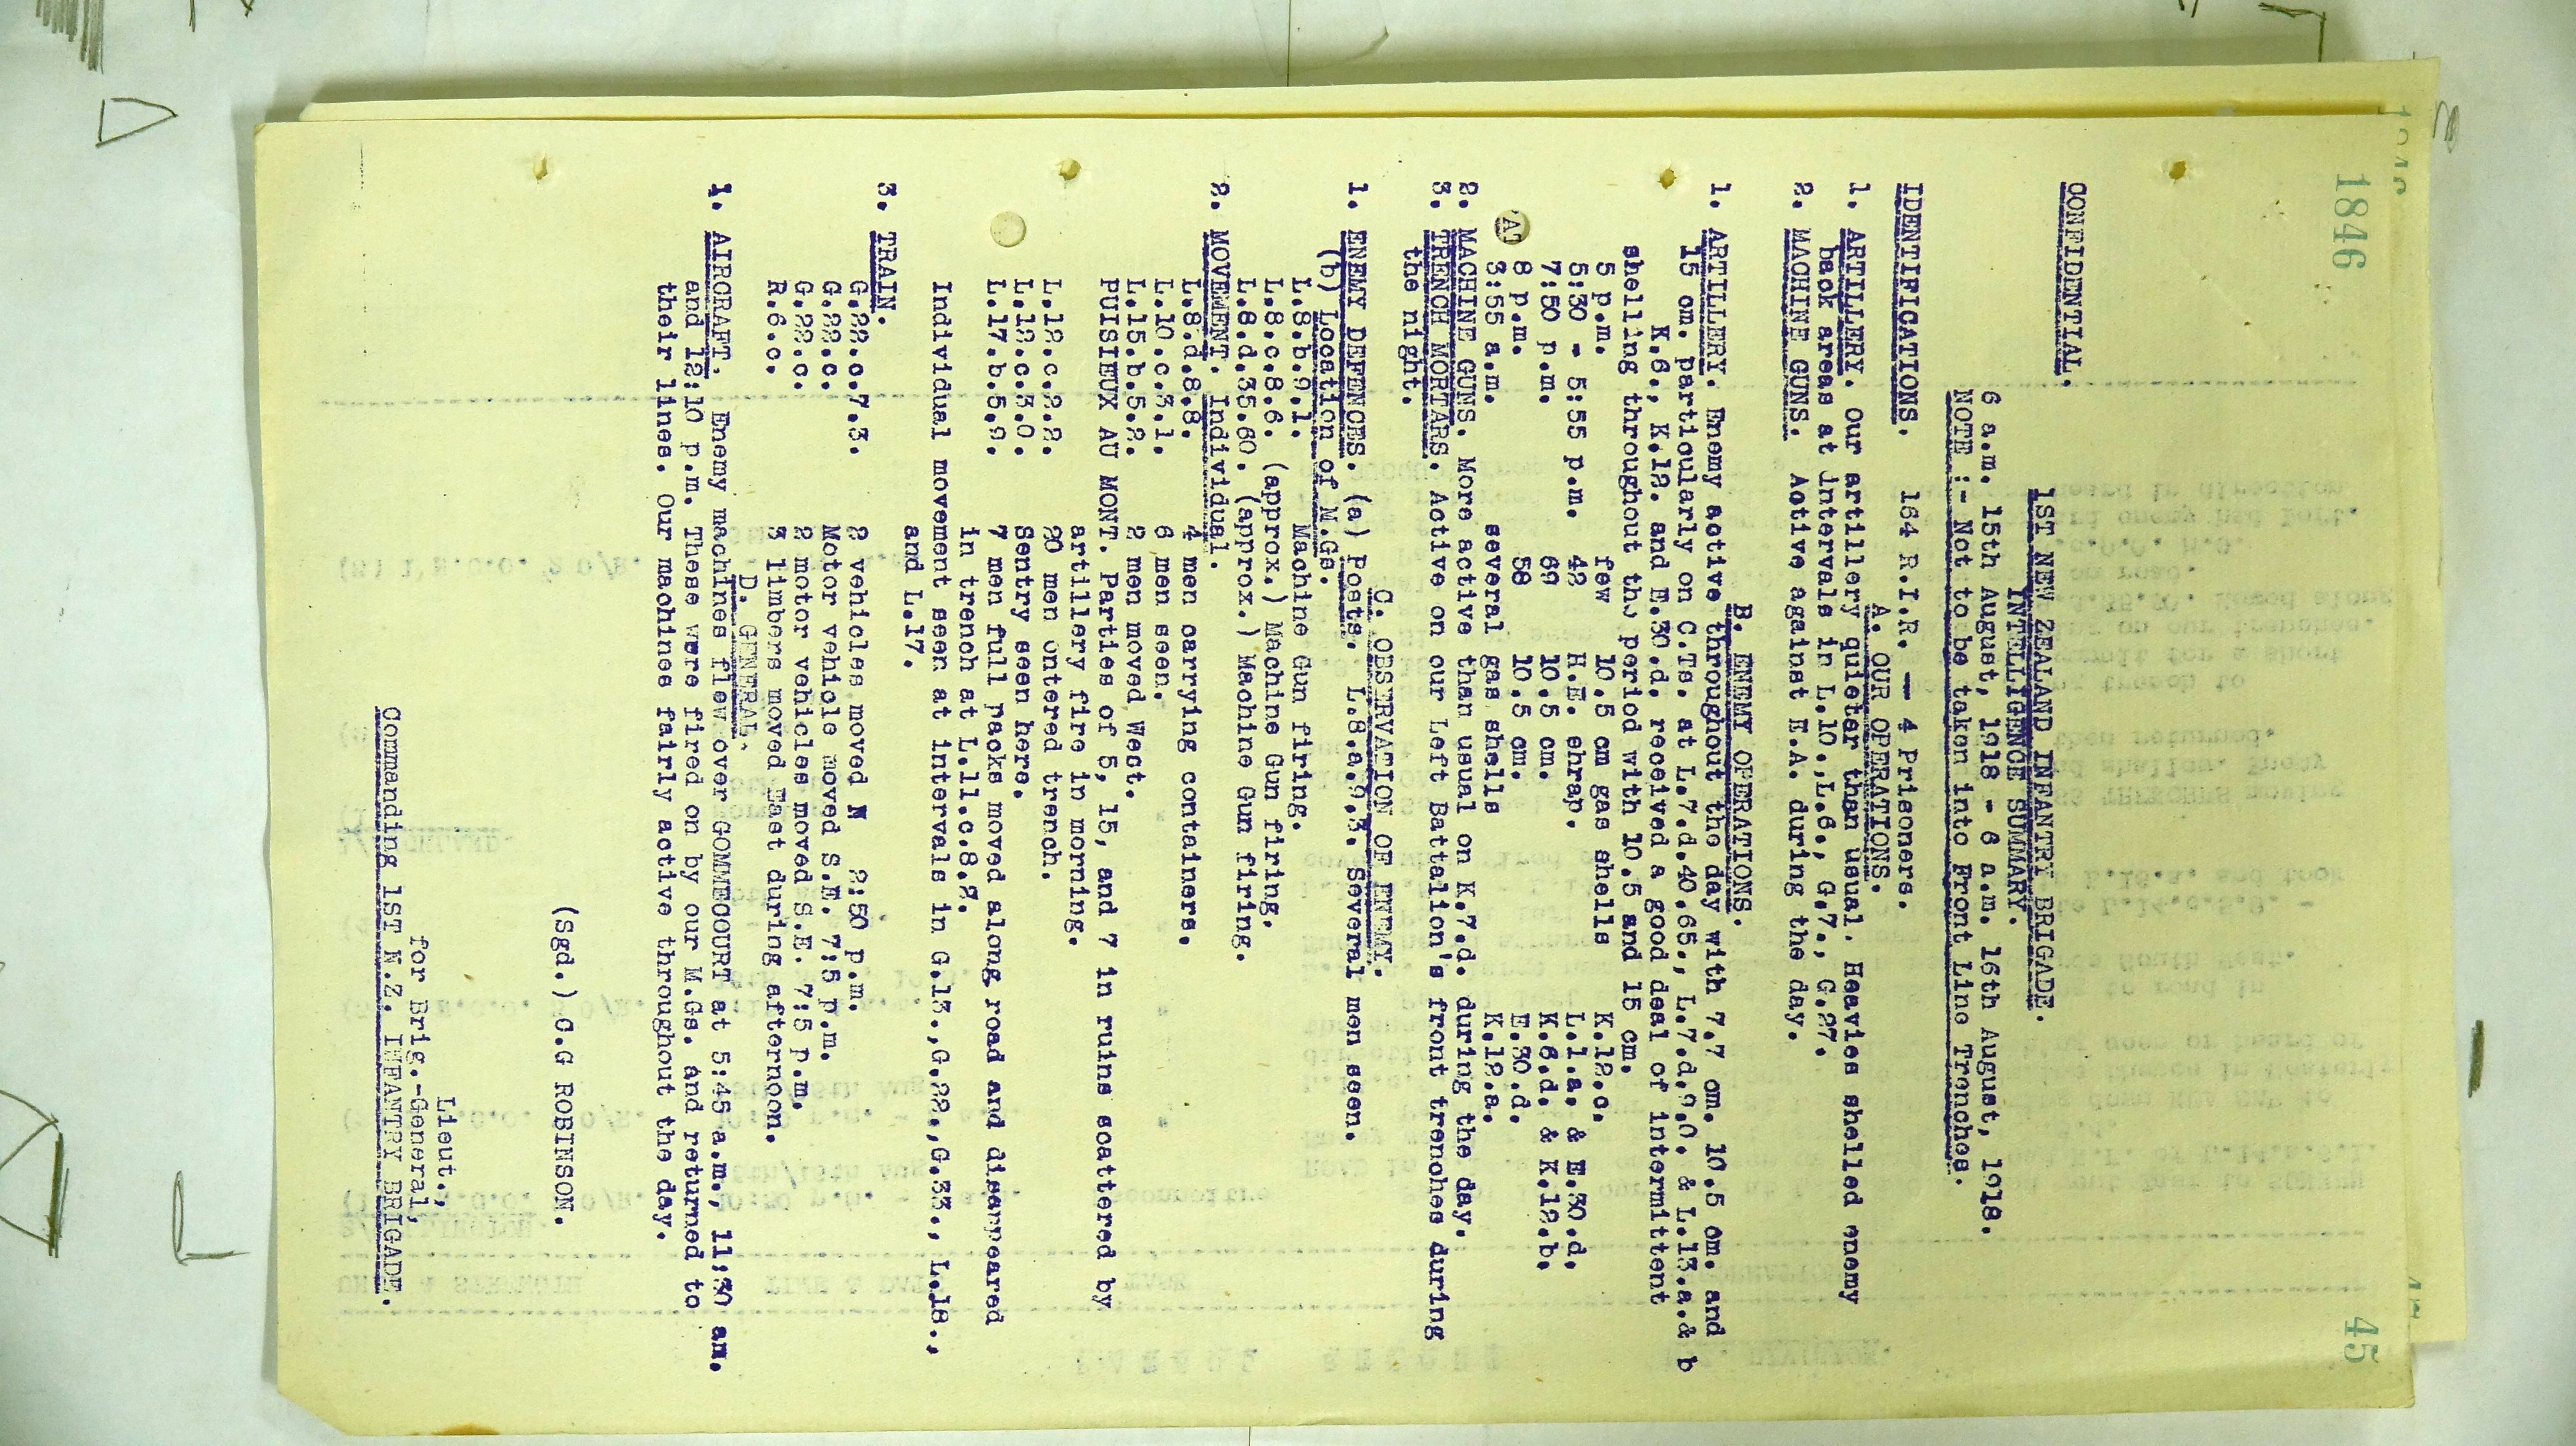 1846
45
CONFIDENTIAL.
1ST NEW ZEALAND INFANTRY BRIGADE.
INTELLIGENCE SUMMARY.
6 a.m. 15th August, 1918 - 6 a.m. 16th August, 1918.
NOTE :- Not to be taken into Front Line Trenches.
IDENTIFICATIONS. 164 R.I.R. — 4 Prisoners.
A. OUR OPERATIONS.
1. ARTILLERY. Our artillery quieter than usual. Heavies shelled enemy
back areas at intervals in L.10.,L.6., G.7., G.27.
2. MACHINE GUNS. Active against E.A. during the day.
B. ENEMY OPERATIONS.
1. ARTILLERY. Enemy active throughout the day with 7.7 cm. 10.5 cm. and
15 cm. particularly on C.Ts. at L.7.d.40.65., L.7.d.9.0. & L.13.a.& b
K.6., K.12. and E.30.d. received a good deal of intermittent
shelling throughout the period with 10.5 and 15 cm.
5 p.m. few 10.5 cm gas shells K.12.c.
5:30 - 5:55 p.m. 42 H.E. shrap. L.1.a. & E.30.d.
7:50 p.m. 69 10.5 cm. K.6.d. & K.12.b.
8 p.m. 58 10.5 cm. E.30.d.
3:55 a.m. several gas shells K.12.a.
2. MACHINE GUNS. More active than usual on K.7.d. during the day.
3. TRENCH MORTARS. Active on our Left Battalion's front trenches during
the night.
C. OBSERVATION OF ENEMY.
1. ENEMY DEFENCES. (a) Posts. L.8.a.9.3. Several men seen.
(b) Location of M.Gs.
L.8.b.9.1. Machine Gun firing.
L.8.c.8.6. (approx.) Machine Gun firing.
L.8.d.35.60. (approx.) Machine Gun firing.
2. MOVEMENT. Individual.
L.8.d.8.8. 4 men carrying containers.
L.10.c.3.1. 6 men seen.
L.15.b.5.2. 2 men moved West.
PUISIEUX AU MONT. Parties of 5, 15, and 7 in ruins scattered by
artillery fire in morning.
L.12.c.2.2. 20 men entered trench.
L.12.c.3.0. Sentry seen here.
L.17.b.5.9. 7 men full packs moved along road and disappeared
in trench at L.11.c.8.2.
Individual movement seen at intervals in G.13.,G.22.,G.33., L.18.,
and L.17.
3. TRAIN.
G.22.c.7.3. 2 vehicles moved N 2:50 p.m.
G.22.c. Motor vehicle moved S.E. 7:5 p.m.
G.22.c. 2 motor vehicles moved S.E. 7:5 p.m.
R.6.c. 3 limbers moved East during afternoon.
D. GENERAL.
1. AIRCRAFT. Enemy machines flew over GOMMECOURT at 5:45 a.m., 11:30 am.
and 12:10 p.m. These were fired on by our M.Gs. and returned to
their lines. Our machines fairly active throughout the day.
(Sgd.) C.G ROBINSON.
Lieut.,
for Brig.-General,
Commanding 1ST N.Z. INFANTRY BRIGADE.